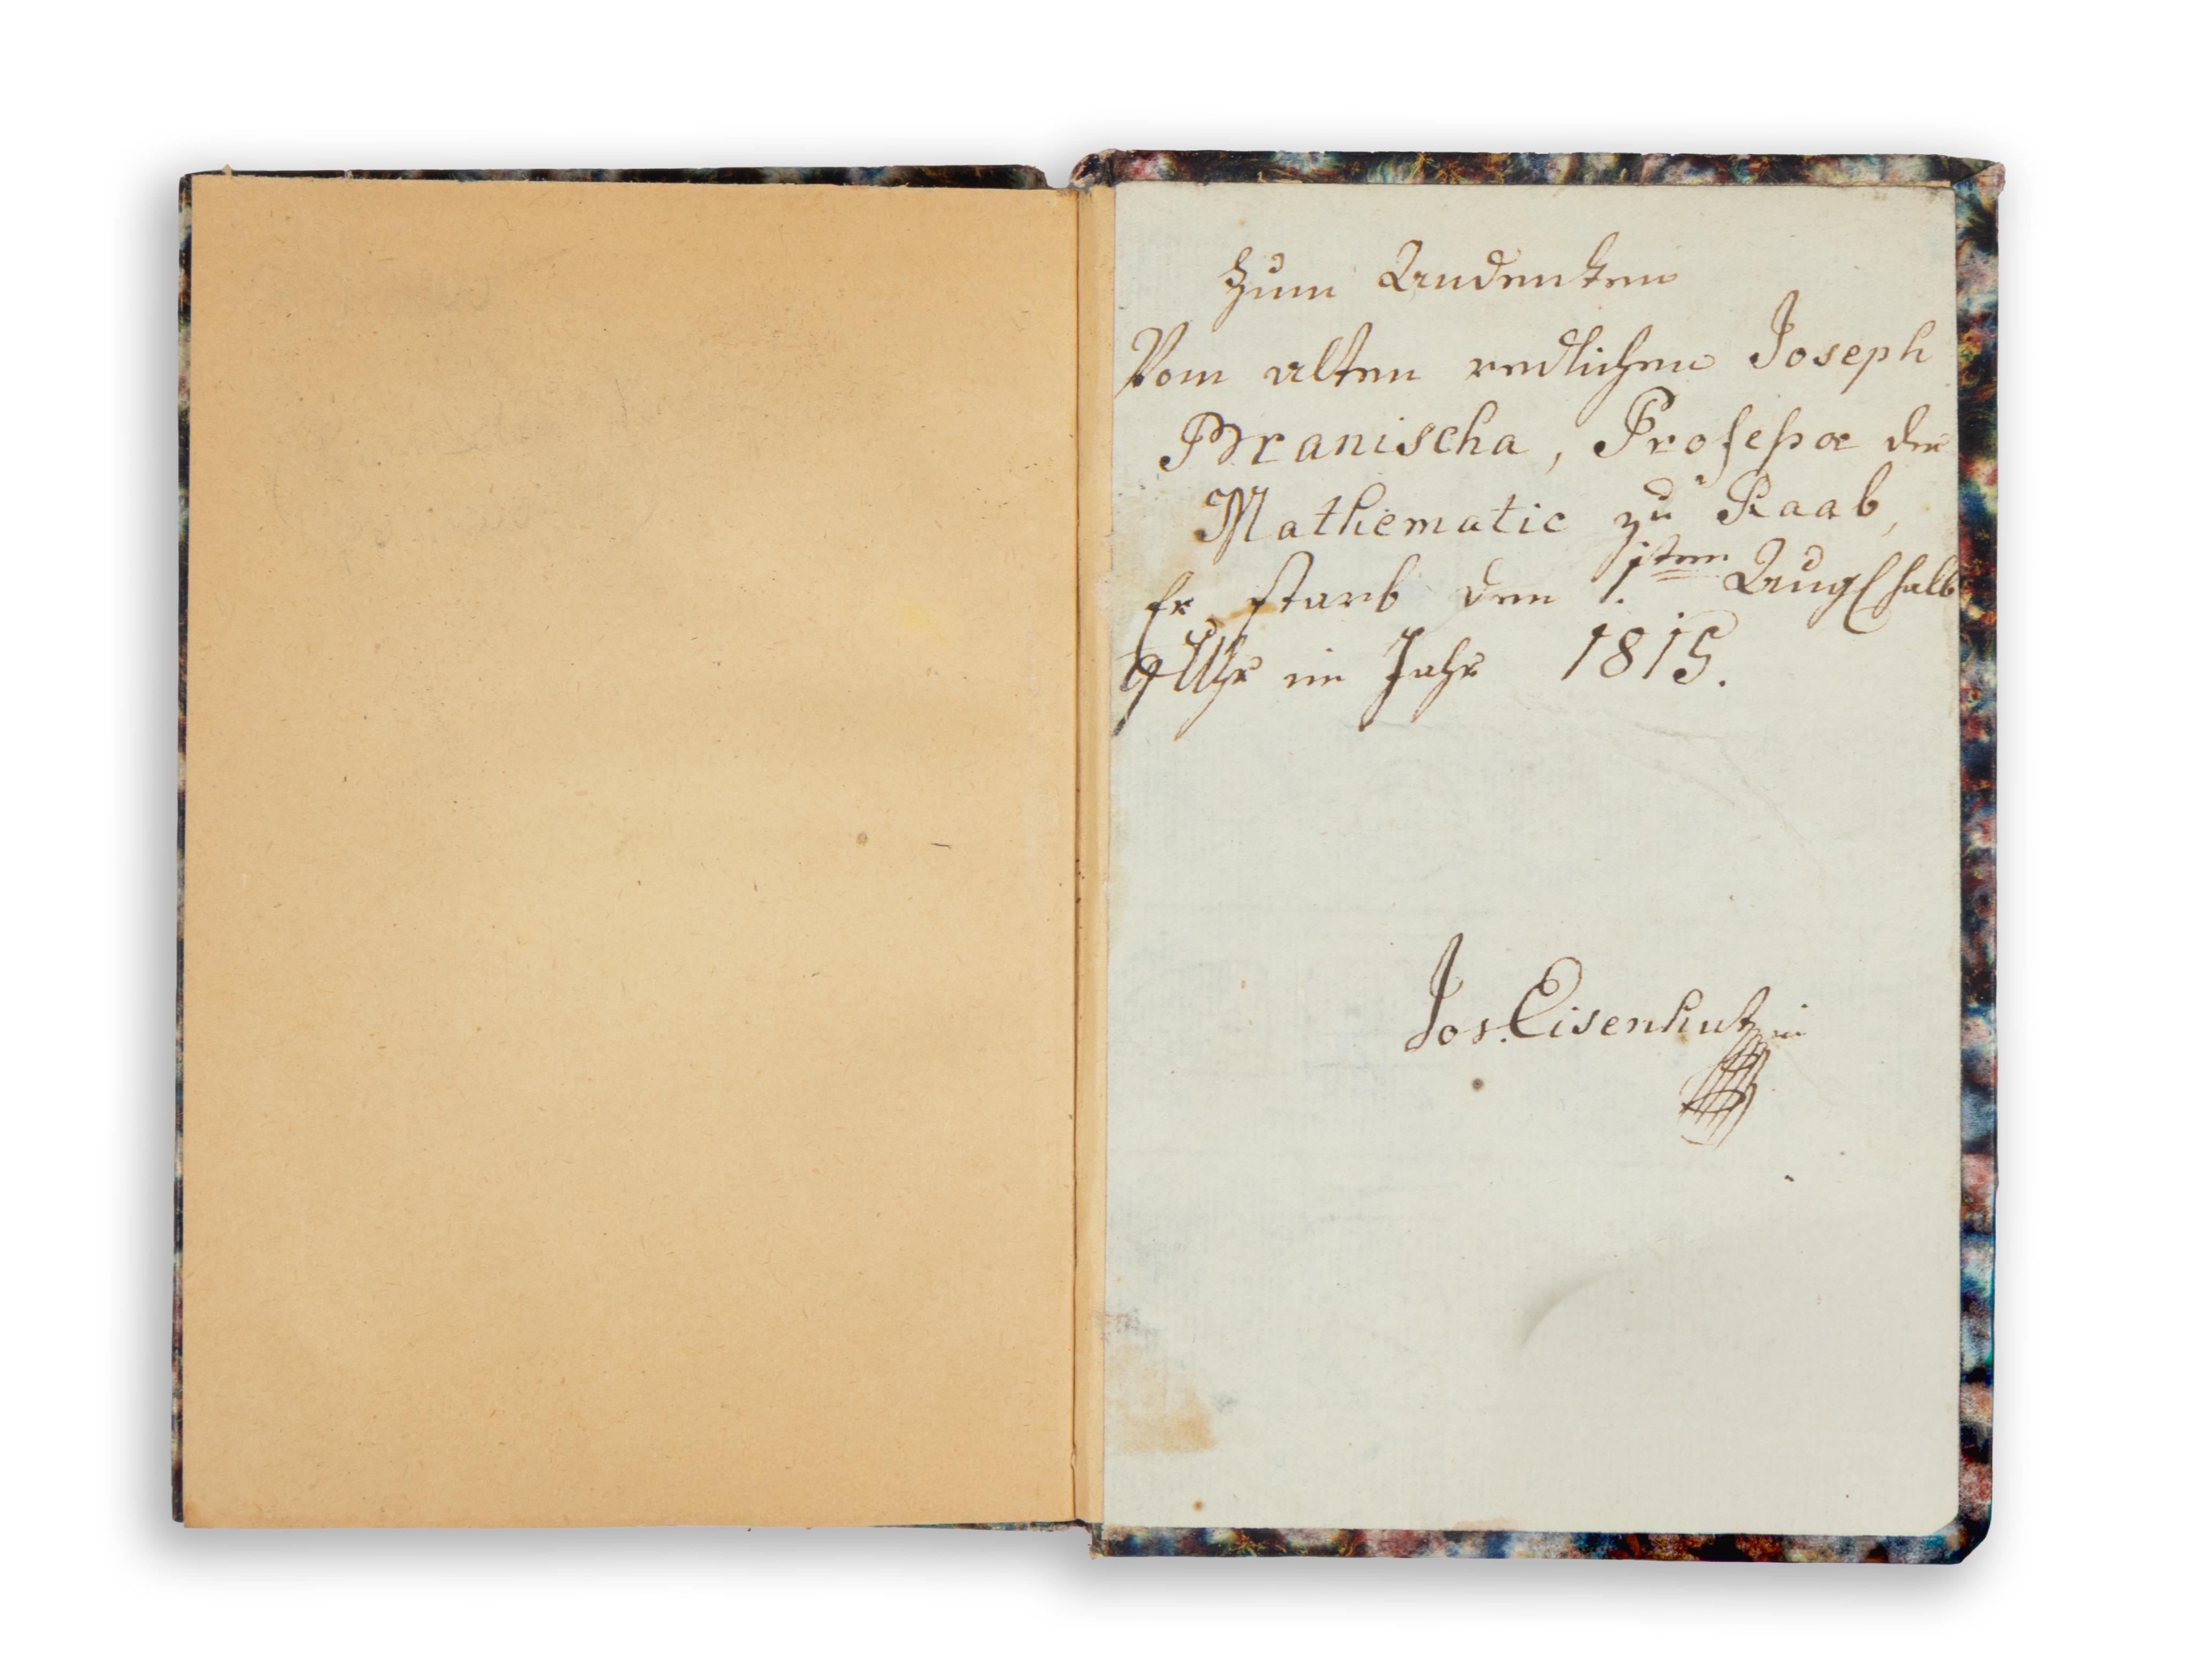 Zum Andenken
Vom alten redlichen Joseph
Branischa, Profeßor der
Mathematic zu Raab,
Er starb den 1.sten Aug halb
9 Uhr im Jahr 1815.
Jos. Eisenhut